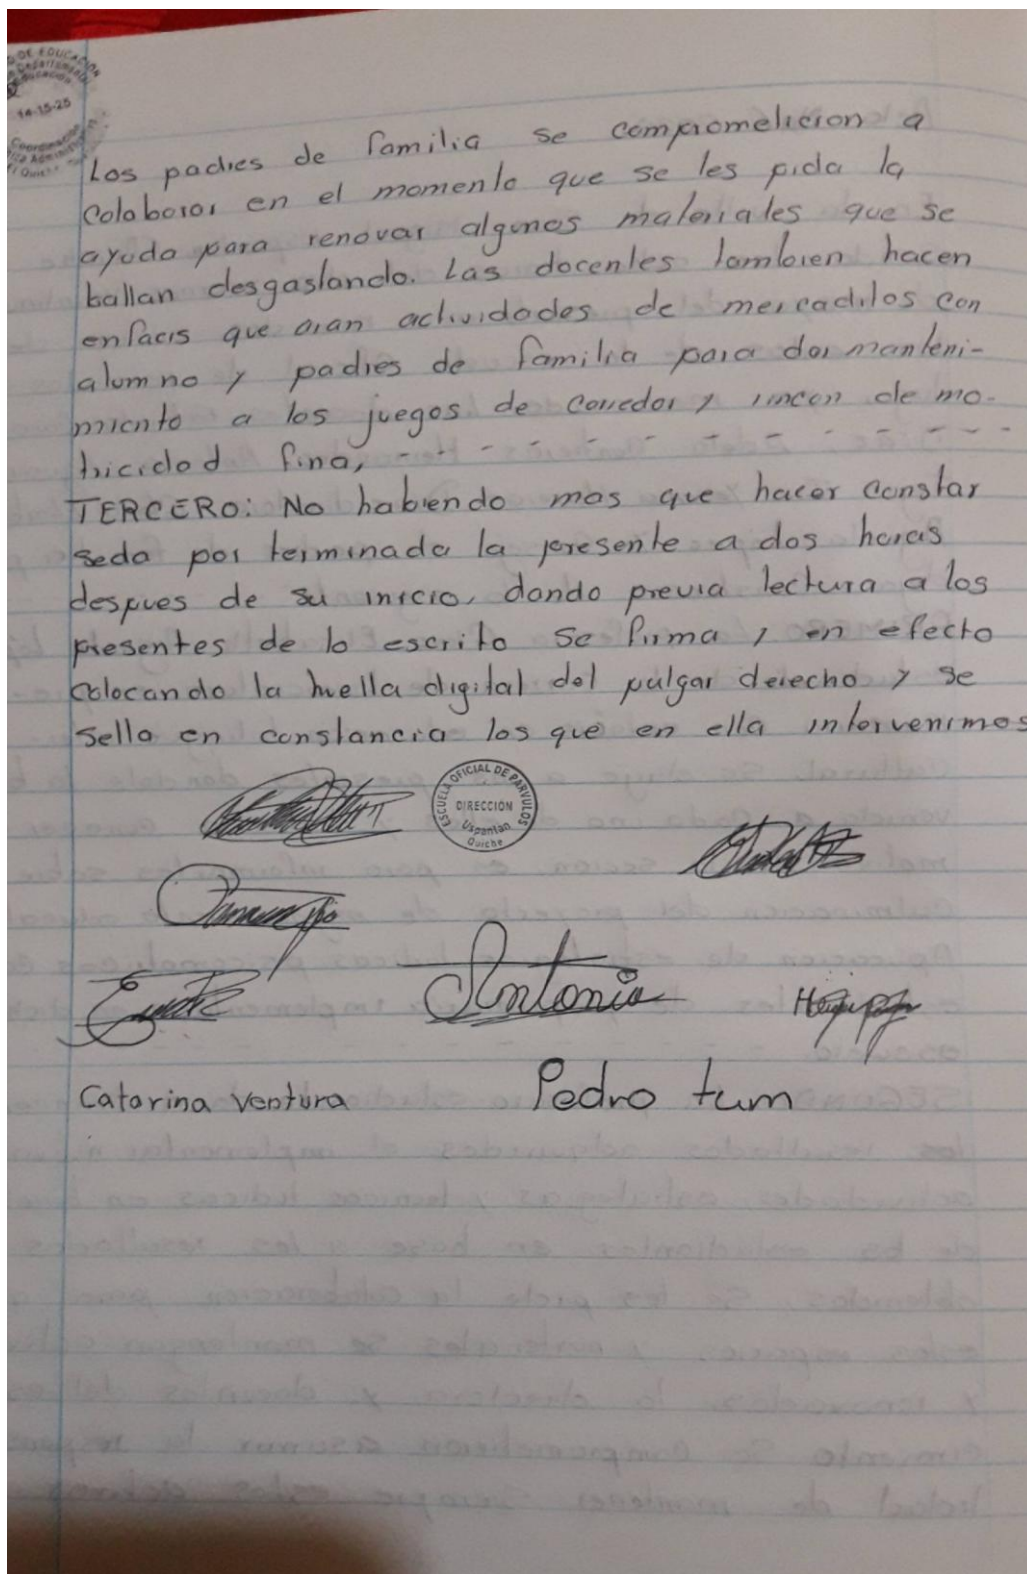 14-15-25
Los padres de familia se comprometieron a
colaborar en el momento que se les pida la
ayuda para renovar algunos materiales que se
ballan desgastando. Las docentes tambien hacen
enfacis que aran actividades de mercaditos con
alumno y padres de familia para dar manteni-
miento a los juegos de corredor y rincon de mo-
tricidad fina, - - - - - - - - - -
TERCERO: No habiendo mas que hacer constar
seda por terminada la presente a dos horas
despues de su inicio, dando previa lectura a los
presentes de lo escrito se firma y en efecto
colocando la huella digital del pulgar derecho y se
sella en constancia los que en ella intervenimos
ESCUELA OFICIAL DE PARVULOS
DIRECCIÓN
Uspantan
Quiche
Antonio
Catarina Ventura
Pedro tum